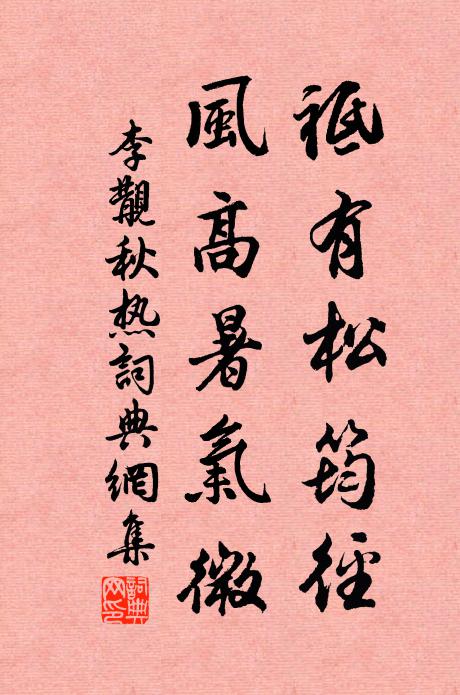 祗有松筠徑
風高暑氣微
李覯秋热詞典網集
詞典網印